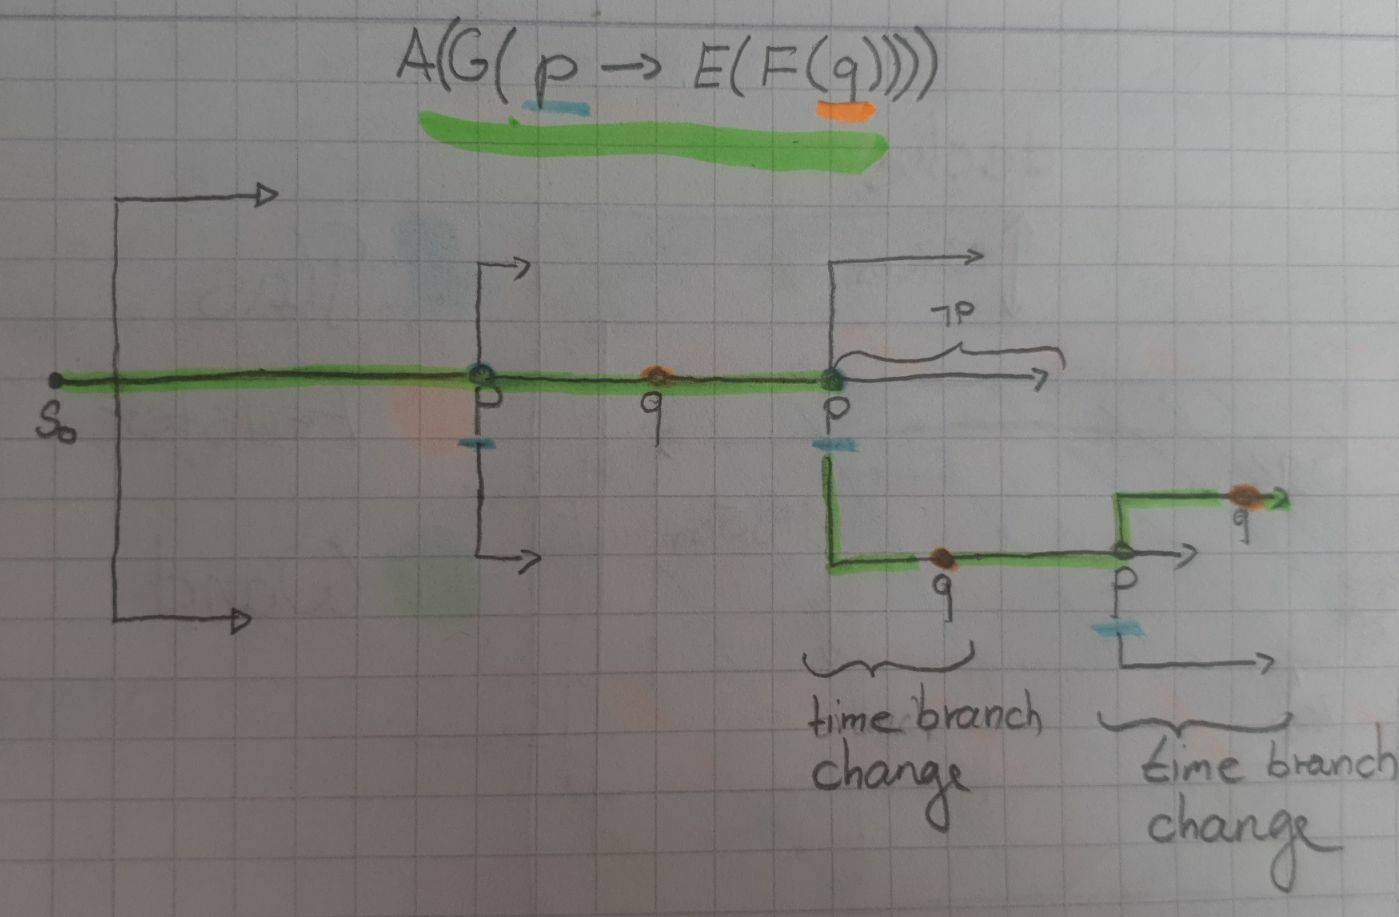 A(G(p → E(F(q))))
¬P
S₀
p
q
p
q
p
q
time branch
change
time branch
change